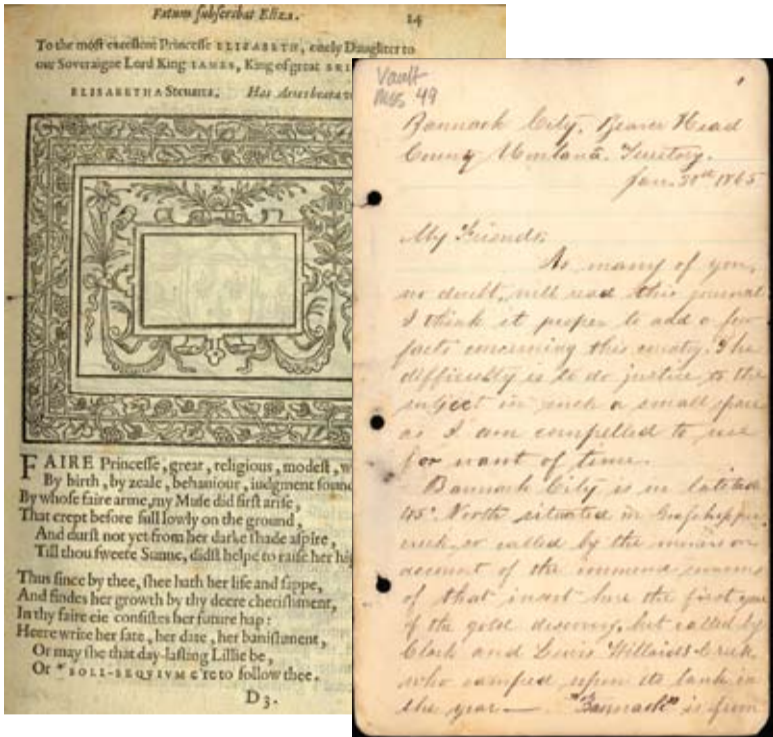 Fatum subscribat Eliza. 14
To the most excellent Princesse ELIZABETH, onely Daughter to
our Soveraigne Lord King IAMES, King of great
ELISABETHA Steuarta. Has Artes beata
FAIRE Princesse, great, religious, modest,
By birth, by zeale, behaviour, iudgment
By whose faire arme, my Muse did first arise,
That crept before full lowly on the ground,
And durst not yet from her darke shade aspire,
Till thou sweete Sunne, didst helpe to raise her
Thus since by thee, shee hath her life and sappe,
And findes her growth by thy deere cherishment,
In thy faire eie consistes her future hap:
Heere write her fate, her date, her banishment,
Or may she that day-lasting Lillie be,
Or * SOLI-SEQVIVM e're to follow thee.
D 3.
Vault
Mss 49
1
Bannack City. Beaver Head
County Montana. Territory.
Jan. 30th 1865
My Friends;
As many of you,
no doubt, will read this journal
I think it proper to add a few
facts concerning this country. The
difficulty is to do justice to the
subject in such a small space
as I am compelled to use
for want of time.
Bannack City is in latitude
45° North situated in Grasshopper
creek, so called by the miners on
account of the immense swarms
of that insect here the first year
of the gold discovery, but called by
Clark and Lewis Willards Creek
who camped upon its bank in
the year — "Bannack" is from